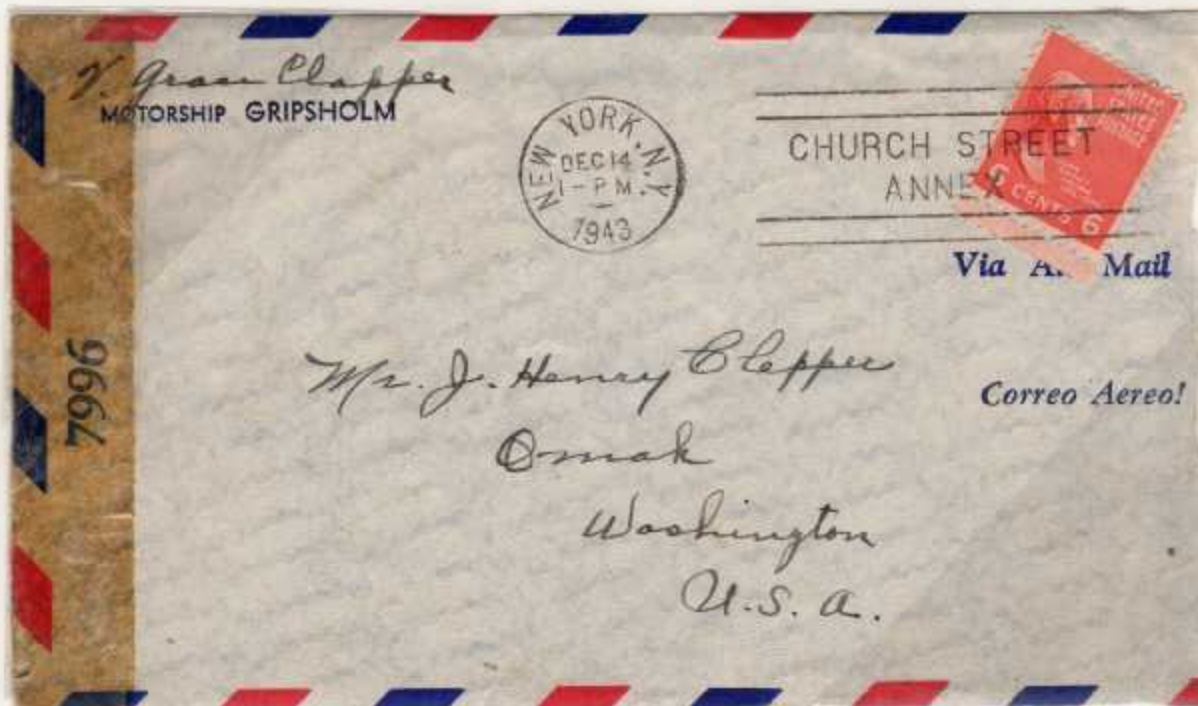 V. Grace Clapper
MOTORSHIP GRIPSHOLM
NEW YORK, N.Y.
DEC 14
1-PM
1943
CHURCH STREET
ANNEX
UNITED
STATES
POSTAGE
6 CENTS 6
Via Mail
Correo Aereo!
7996
Mr. J. Henry Clapper
Omak
Washington
U.S.A.